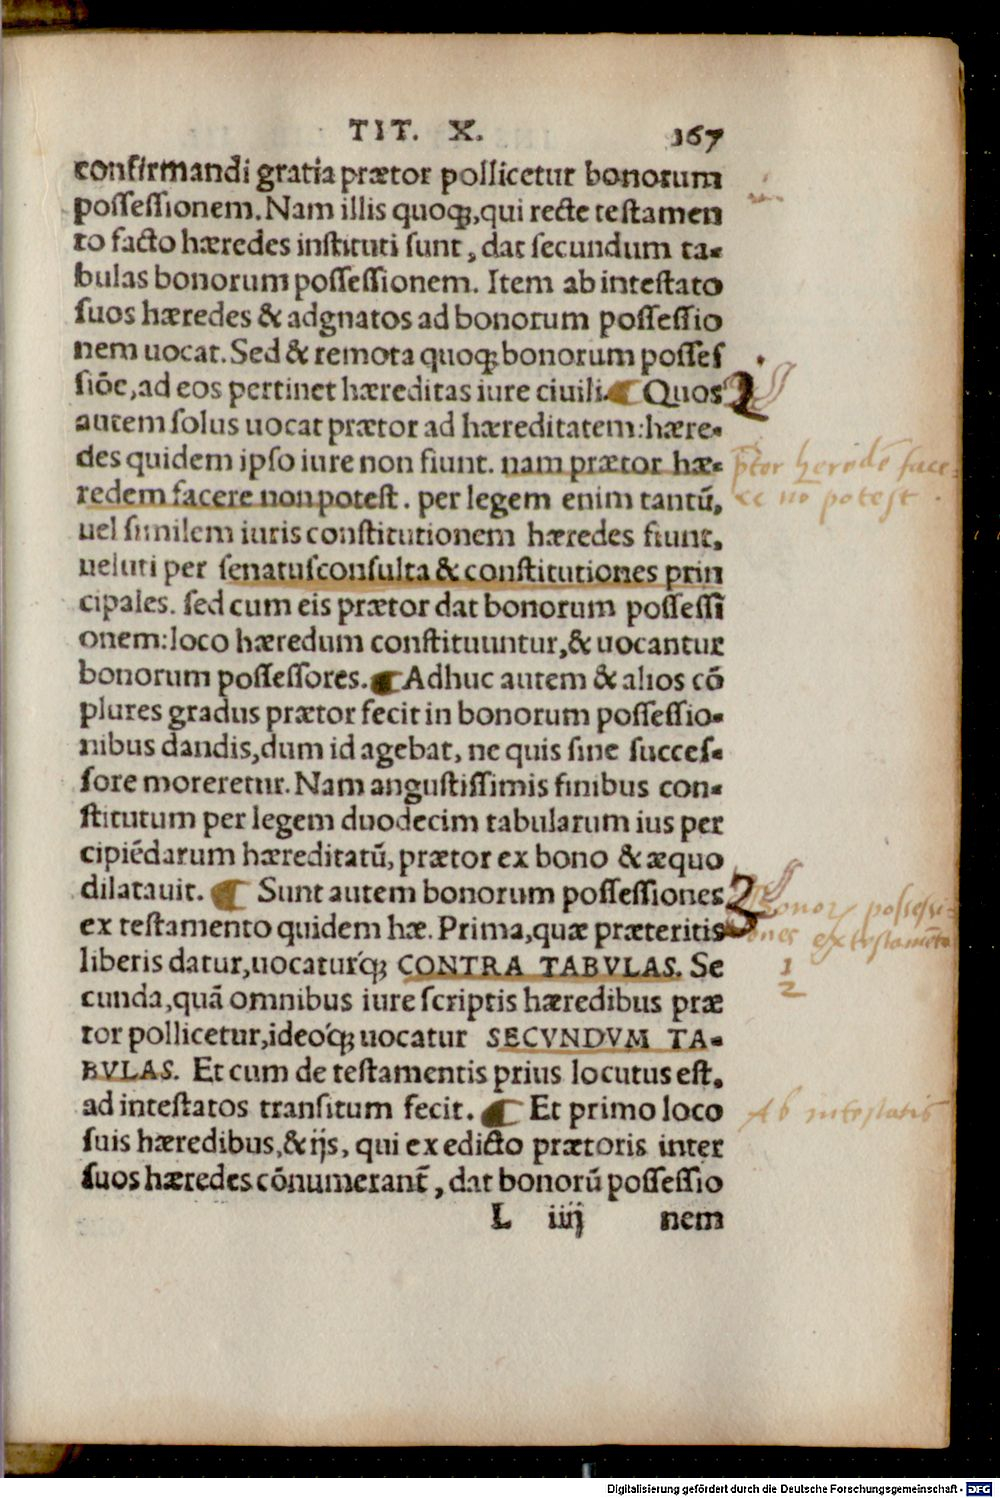 TIT. X. 167
confirmandi gratia prætor pollicetur bonorum
possessionem. Nam illis quoq;, qui recte testamen
to facto hæredes instituti sunt, dat secundum ta-
bulas bonorum possessionem. Item ab intestato
suos hæredes & adgnatos ad bonorum possessio
nem uocat. Sed & remota quoq; bonorum posses
siōe, ad eos pertinet hæreditas iure ciuili. Quos
autem solus uocat prætor ad hæreditatem: hære-
des quidem ipso iure non fiunt. nam prætor hæ-
redem facere non potest. per legem enim tantū,
uel similem iuris constitutionem hæredes fiunt,
ueluti per senatusconsulta & constitutiones prin
cipales. sed cum eis prætor dat bonorum possessi
onem: loco hæredum constituuntur, & uocantur
bonorum possessores. Adhuc autem & alios cō
plures gradus prætor fecit in bonorum possessio-
nibus dandis, dum id agebat, ne quis sine succes-
sore moreretur. Nam angustissimis finibus con-
stitutum per legem duodecim tabularum ius per
cipiēdarum hæreditatū, prætor ex bono & æquo
dilatauit. Sunt autem bonorum possessiones
ex testamento quidem hæ. Prima, quæ præteritis
liberis datur, uocaturq́; CONTRA TABVLAS. Se
cunda, quā omnibus iure scriptis hæredibus præ
tor pollicetur, ideoq́; uocatur SECVNDVM TA-
BVLAS. Et cum de testamentis prius locutus est,
ad intestatos transitum fecit. Et primo loco
suis hæredibus, & ijs, qui ex edicto prætoris inter
suos hæredes cōnumerant̃, dat bonorū possessio
L iiij nem
ptor heredē face-
re nō potest.
bonor possessi-
ones ex testamēto
1
2
Ab intestatis
Digitalisierung gefördert durch die Deutsche Forschungsgemeinschaft - DFG